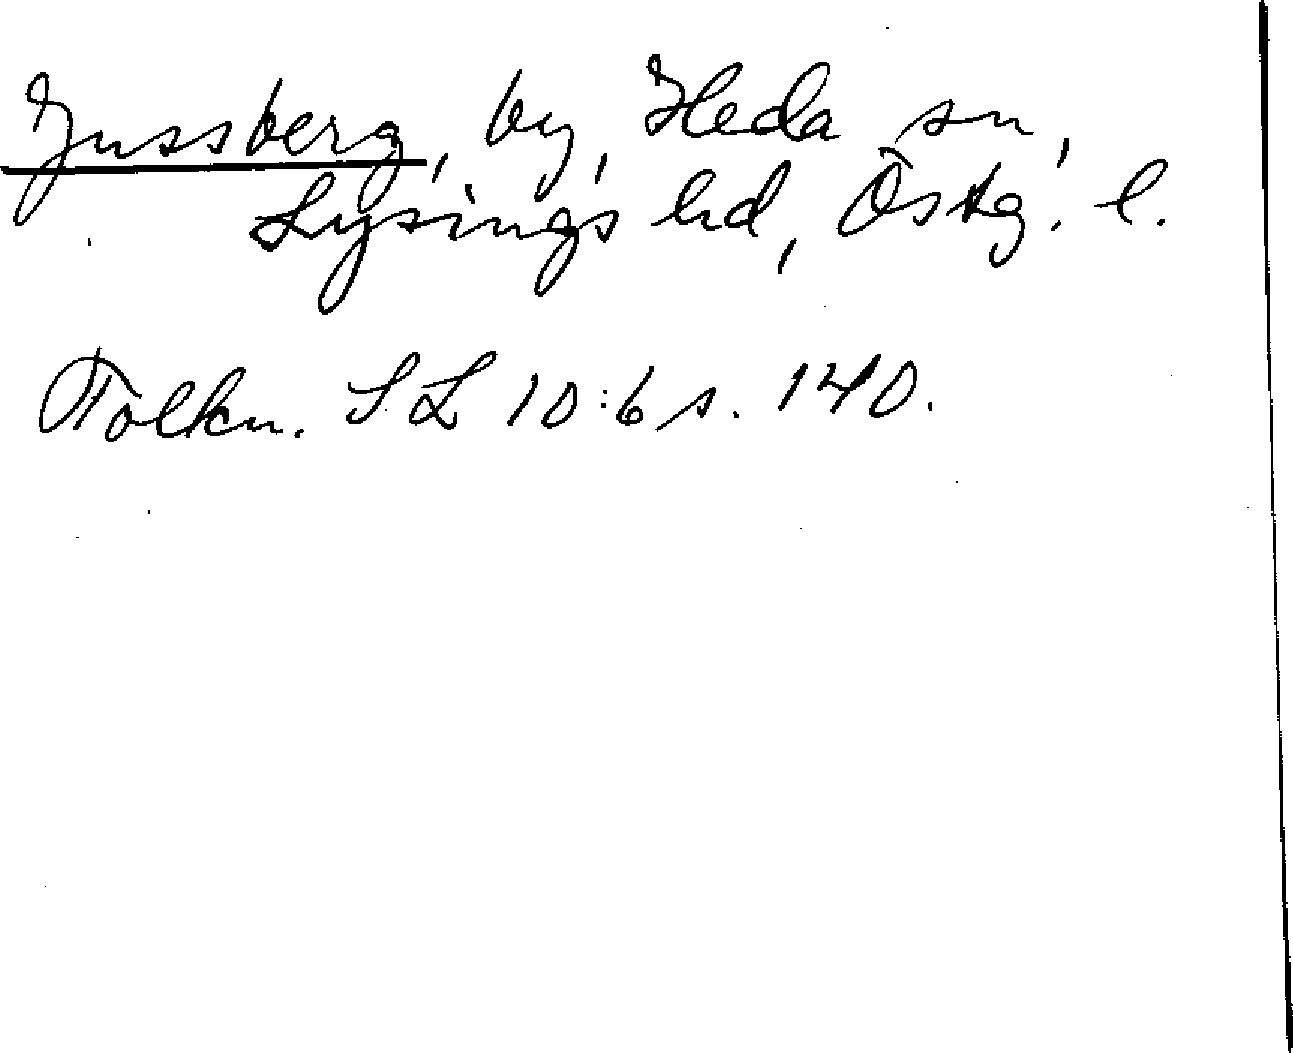 Jussberg, by, Heda sn,
Lysings hd, Östg. l.
Tolkn. SL 10:6 s. 140.